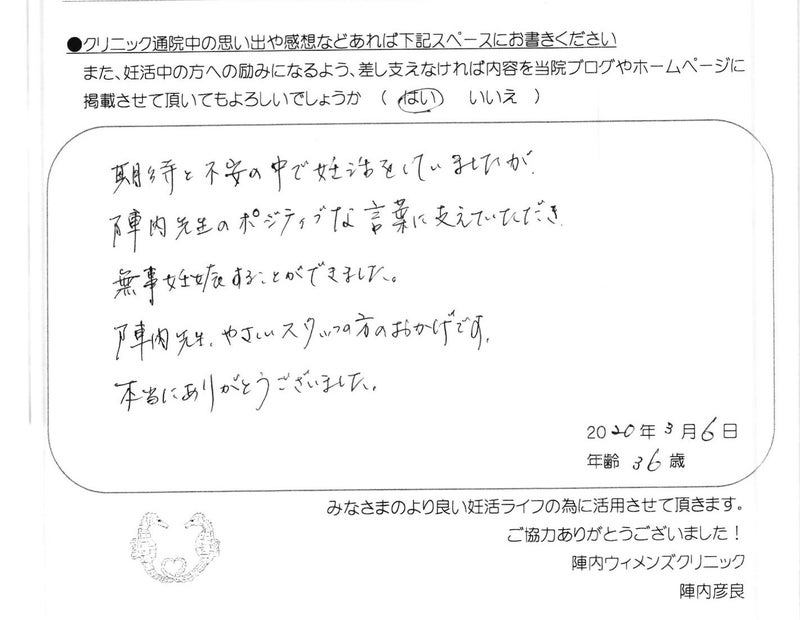 ●クリニック通院中の思い出や感想などあれば下記スペースにお書きください
また、妊活中の方への励みになるよう、差し支えなければ内容を当院ブログやホームページに
掲載させて頂いてもよろしいでしょうか （ はい　いいえ ）
期待と不安の中で妊活をしていましたが、
陣内先生のポジティブな言葉に支えていただき、
無事妊娠することができました。
陣内先生、やさしいスタッフの方のおかげです。
本当にありがとうございました。
2020年 3月 6日
年齢 36歳
みなさまのより良い妊活ライフの為に活用させて頂きます。
ご協力ありがとうございました！
陣内ウィメンズクリニック
陣内彦良